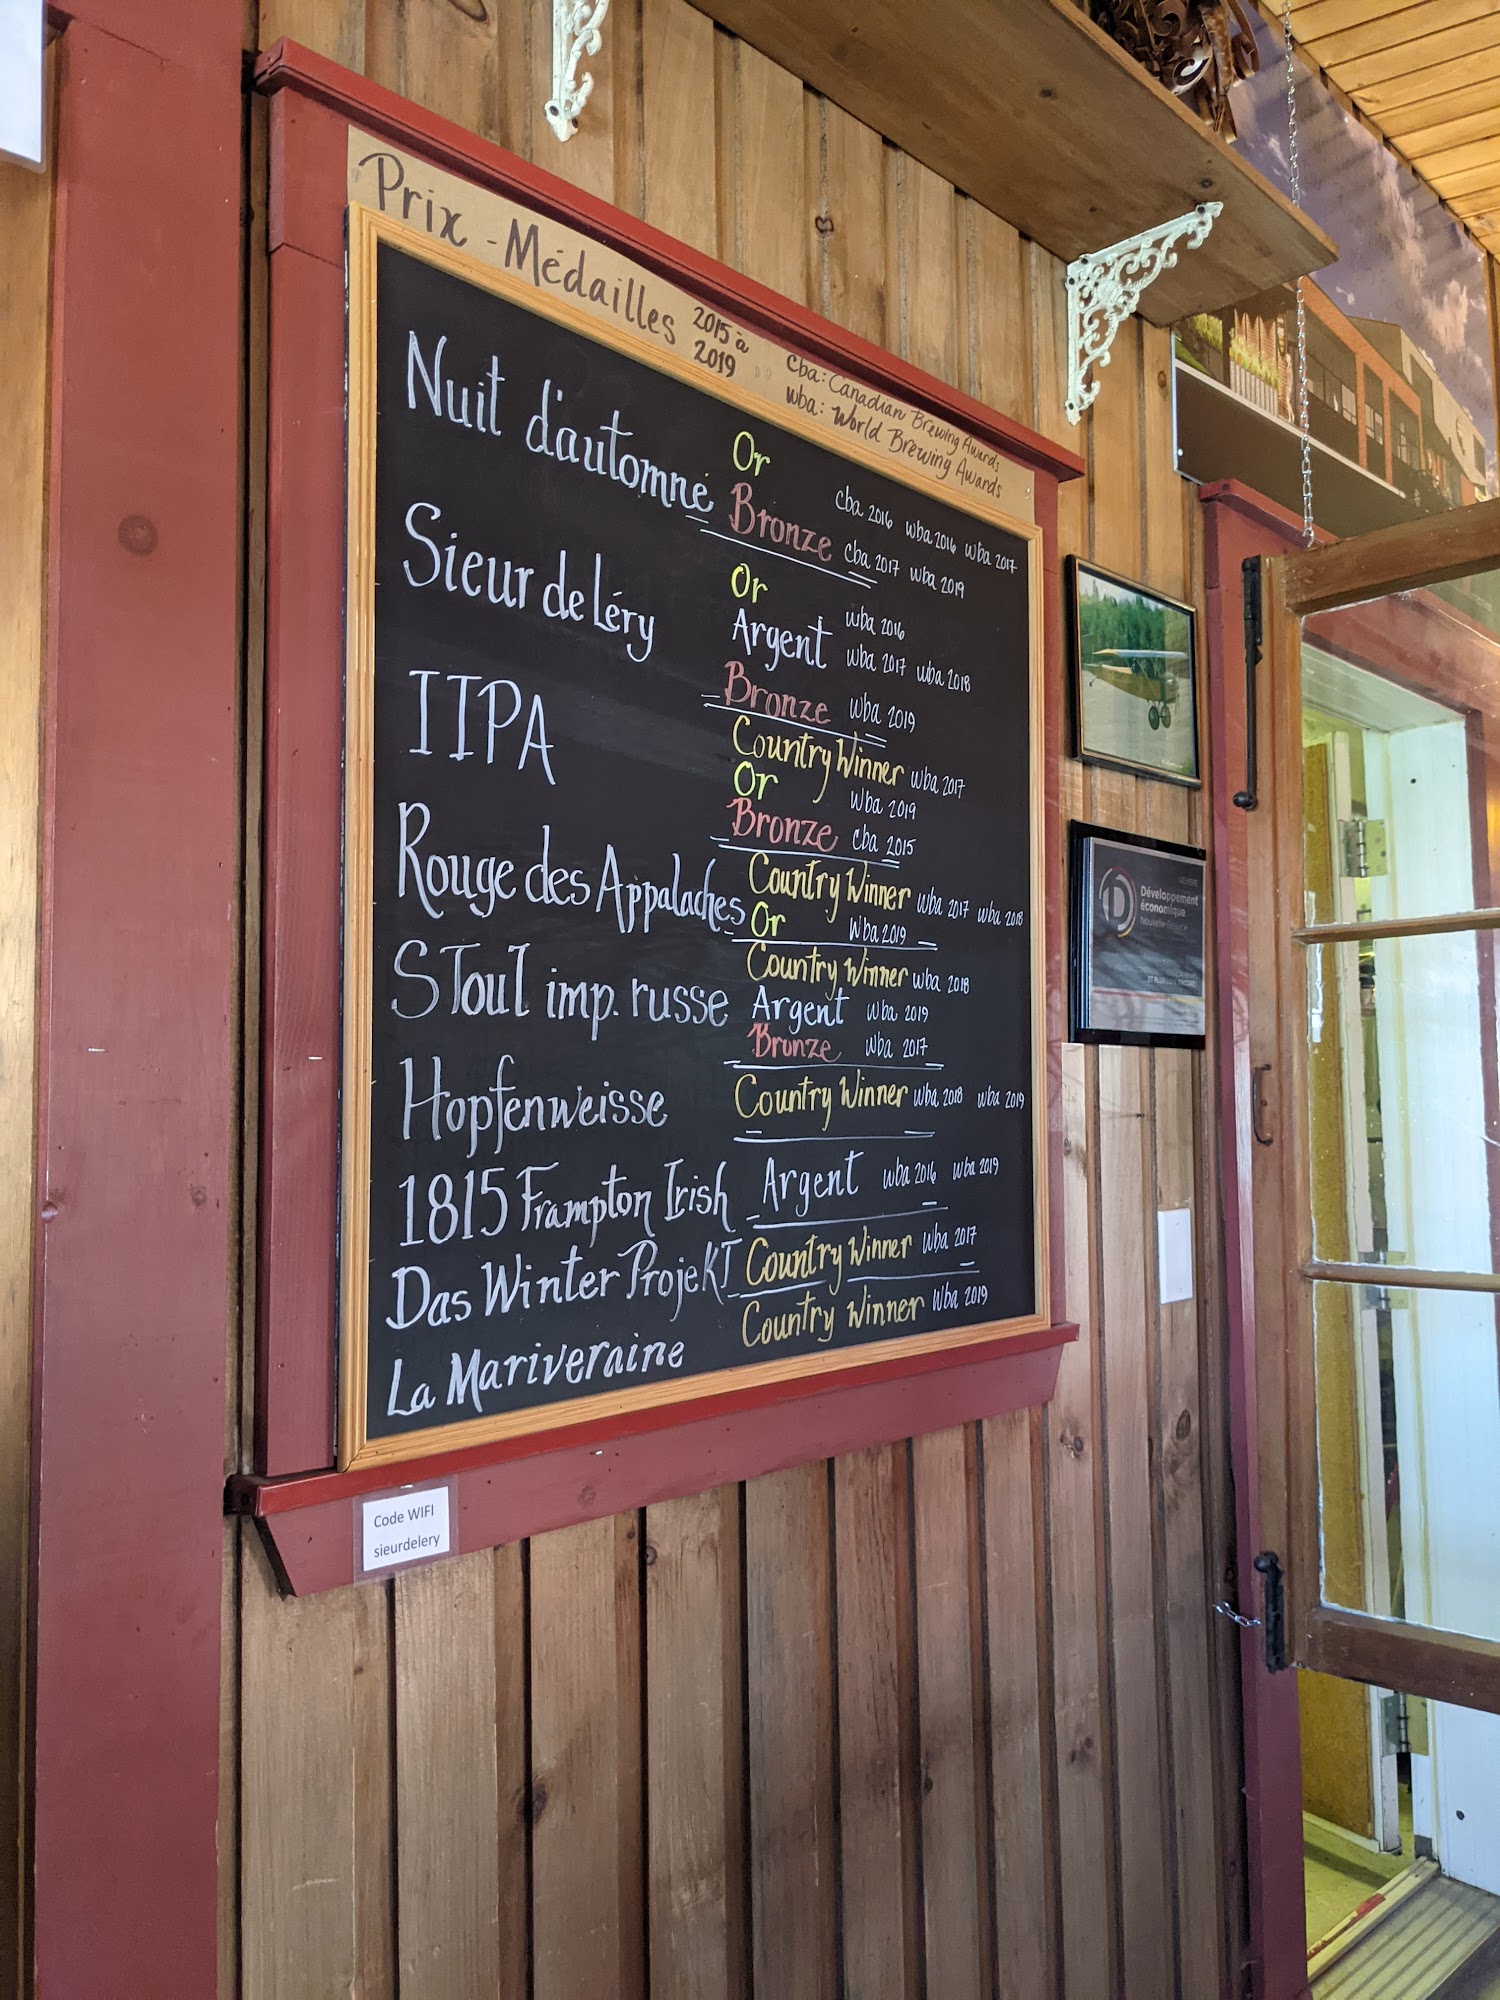 Prix - Médailles 2015 à 2019
cba: Canadian Brewing Awards
wba: World Brewing Awards
Nuit d'automne Or cba 2016 wba 2016 wba 2017
Bronze cba 2017 wba 2019
Sieur de Léry Or wba 2016
Argent wba 2017 wba 2018
Bronze wba 2019
IIPA Country Winner wba 2017
Or wba 2019
Bronze cba 2015
Rouge des Appalaches Country Winner wba 2017 wba 2018
Or wba 2019
Stout imp. russe Country Winner wba 2018
Argent wba 2019
Bronze wba 2017
Hopfenweisse Country Winner wba 2018 wba 2019
1815 Frampton Irish Argent wba 2016 wba 2019
Das Winter Projekt Country Winner wba 2017
La Mariveraine Country Winner wba 2019
Code WIFI
sieurdelery
MEMBRE
Développement
économique
Nouvelle-Beauce